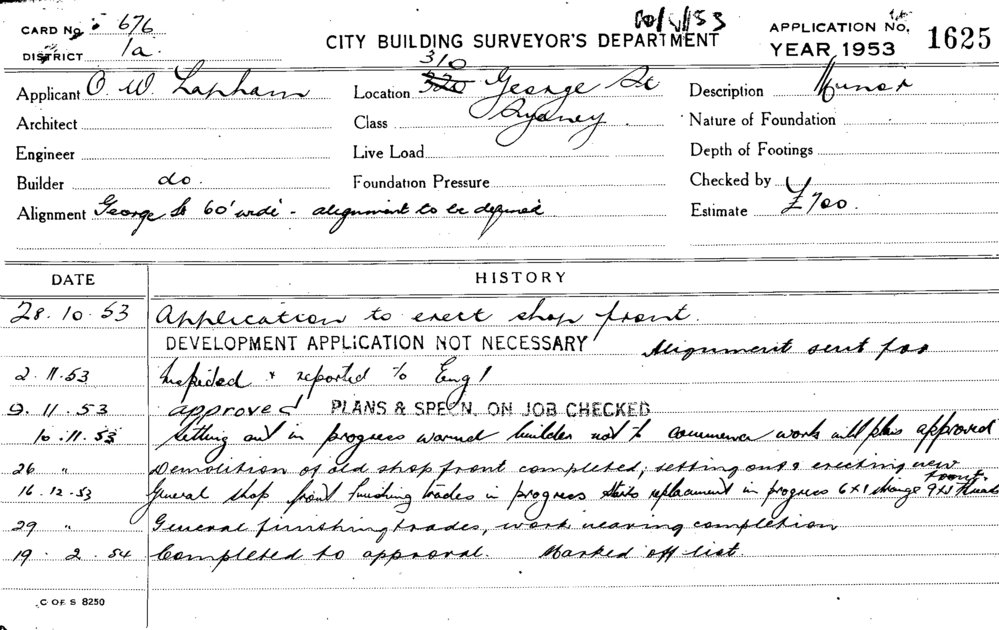 CARD No. 676
DISTRICT 1a.
CITY BUILDING SURVEYOR'S DEPARTMENT
APPLICATION No.
YEAR 1953 1625
Applicant O. W. Lapham
Location 310 320 George St
Sydney
Description Minor
Architect
Class
Nature of Foundation
Engineer
Live Load
Depth of Footings
Builder do.
Foundation Pressure
Checked by
Alignment George St 60' wide - alignment to be defined
Estimate £700.
DATE HISTORY
28.10.53 Application to erect shop front.
DEVELOPMENT APPLICATION NOT NECESSARY Alignment sent for
2.11.53 Inspected & reported to Eng'
9.11.53 approved PLANS & SPECN. ON JOB CHECKED
10.11.53 Setting out in progress warned builder not to commence works till plans approved
26 " Demolition of old shop front completed; setting out & erecting new front.
16.12.53 General shop front finishing trades in progress stairs replacement in progress 6x1 9x2
29 " General finishing trades, work nearing completion
19.2.54 Completed to approval. Marked off list.
C OF S 8250